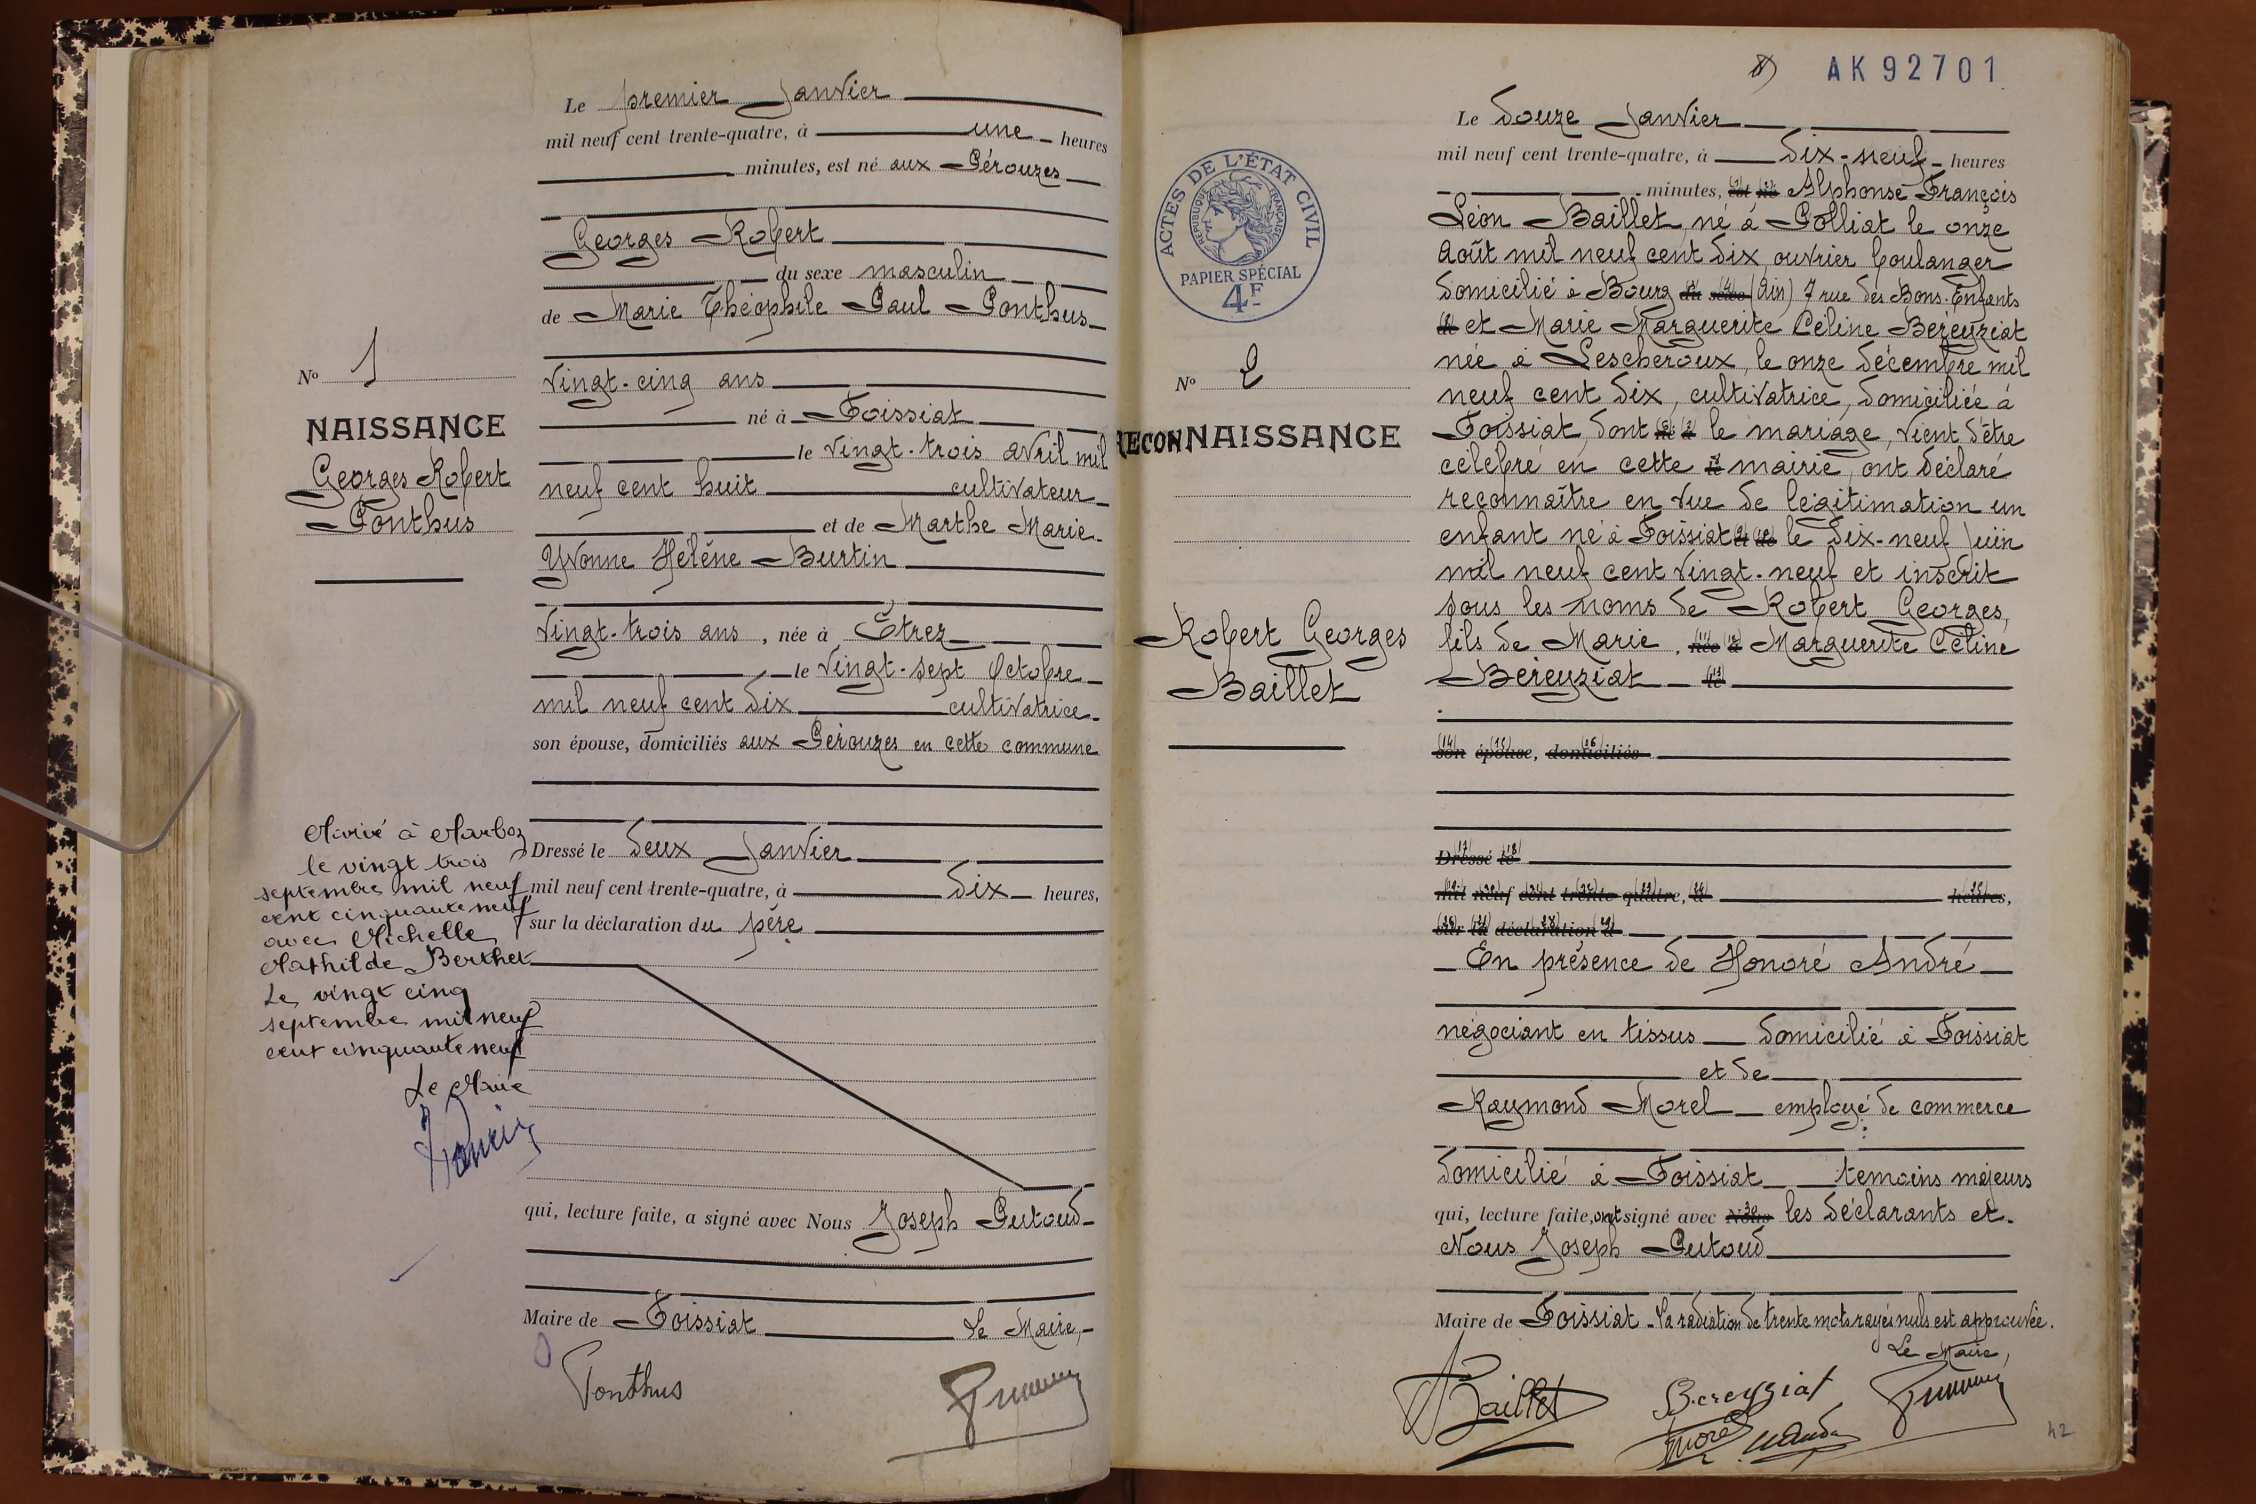 Le premier Janvier
mil neuf cent trente-quatre, à une heures
minutes, est né aux Pérouzes
Georges Robert
du sexe masculin
de Marie Théophile Paul Ponthus
vingt-cinq ans
né à Foissiat
le vingt-trois avril mil
neuf cent huit cultivateur
et de Marthe Marie
Yvonne Hélène Burtin
vingt-trois ans, née à Étrez
le vingt-sept Octobre
mil neuf cent dix cultivatrice
son épouse, domiciliés aux Pérouzes en cette commune
Dressé le deux Janvier
mil neuf cent trente-quatre, à dix heures,
sur la déclaration du père
qui, lecture faite, a signé avec Nous Joseph Putoud
Maire de Foissiat Le Maire,
Ponthus
No 1
NAISSANCE
Georges Robert
Ponthus
Marié à Marboz
le vingt trois
septembre mil neuf
cent cinquante neuf
avec Michelle
Mathilde Berthet
Le vingt cinq
septembre mil neuf
cent cinquante neuf
Le Maire
AK 92701
ACTES DE L'ÉTAT CIVIL
RÉPUBLIQUE FRANÇAISE
PAPIER SPÉCIAL
4F
No 2
RECONNAISSANCE
Robert Georges
Baillet
Le douze Janvier
mil neuf cent trente-quatre, à dix-neuf heures
minutes, est né Alphonse François
Léon Baillet né à Polliat le onze
août mil neuf cent dix ouvrier boulanger
domicilié à Bourg du sexe (Ain) 7 rue des Bons-Enfants
de et Marie Marguerite Céline Béréyziat
née à Lescheroux, le onze décembre mil
neuf cent dix, cultivatrice, domiciliée à
Foissiat, dont né à le mariage vient d'être
célébré en cette le mairie, ont déclaré
reconnaître en vue de légitimation un
enfant né à Foissiat et de le dix-neuf Juin
mil neuf cent vingt-neuf et inscrit
sous les noms de Robert Georges,
fils de Marie, née à Marguerite Céline
Béréyziat le
son épouse, domiciliés
Dressé le
mil neuf cent trente-quatre, à heures,
sur la déclaration d
En présence de Honoré André
négociant en tissus domicilié à Foissiat
et de
Raymond Morel employé de commerce
domicilié à Foissiat témoins majeurs
qui, lecture faite, ont signé avec Nous les déclarants et
Nous Joseph Putoud
Maire de Foissiat - La radiation de trente mots rayés nuls est approuvée.
Le Maire,
Baillet
Bereyziat
Morel
42